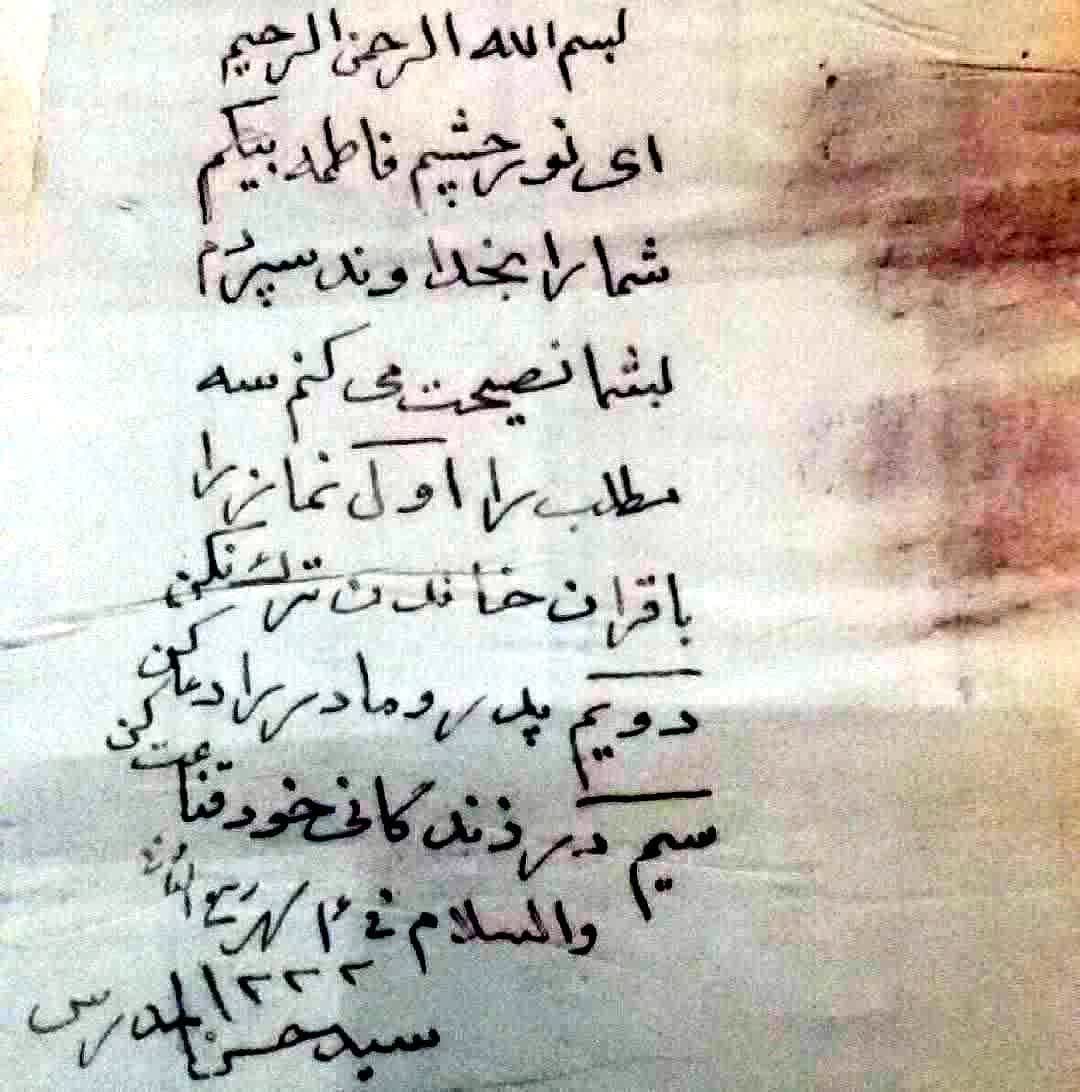 بسم الله الرحمن الرحیم
ای نور چشیم فاطمه بیکم
شما را بخداوند سپردم
بشما نصیحت می کنم سه
مطلب را اول نماز را
با قران خاندن ترک نکن
دویم پدر و مادر را دعا کن
سیم در زندکانی خود قناعت کن
والسلام فی شهر ربیع الثانی
۱۲۲۲
سید حسن المدرس